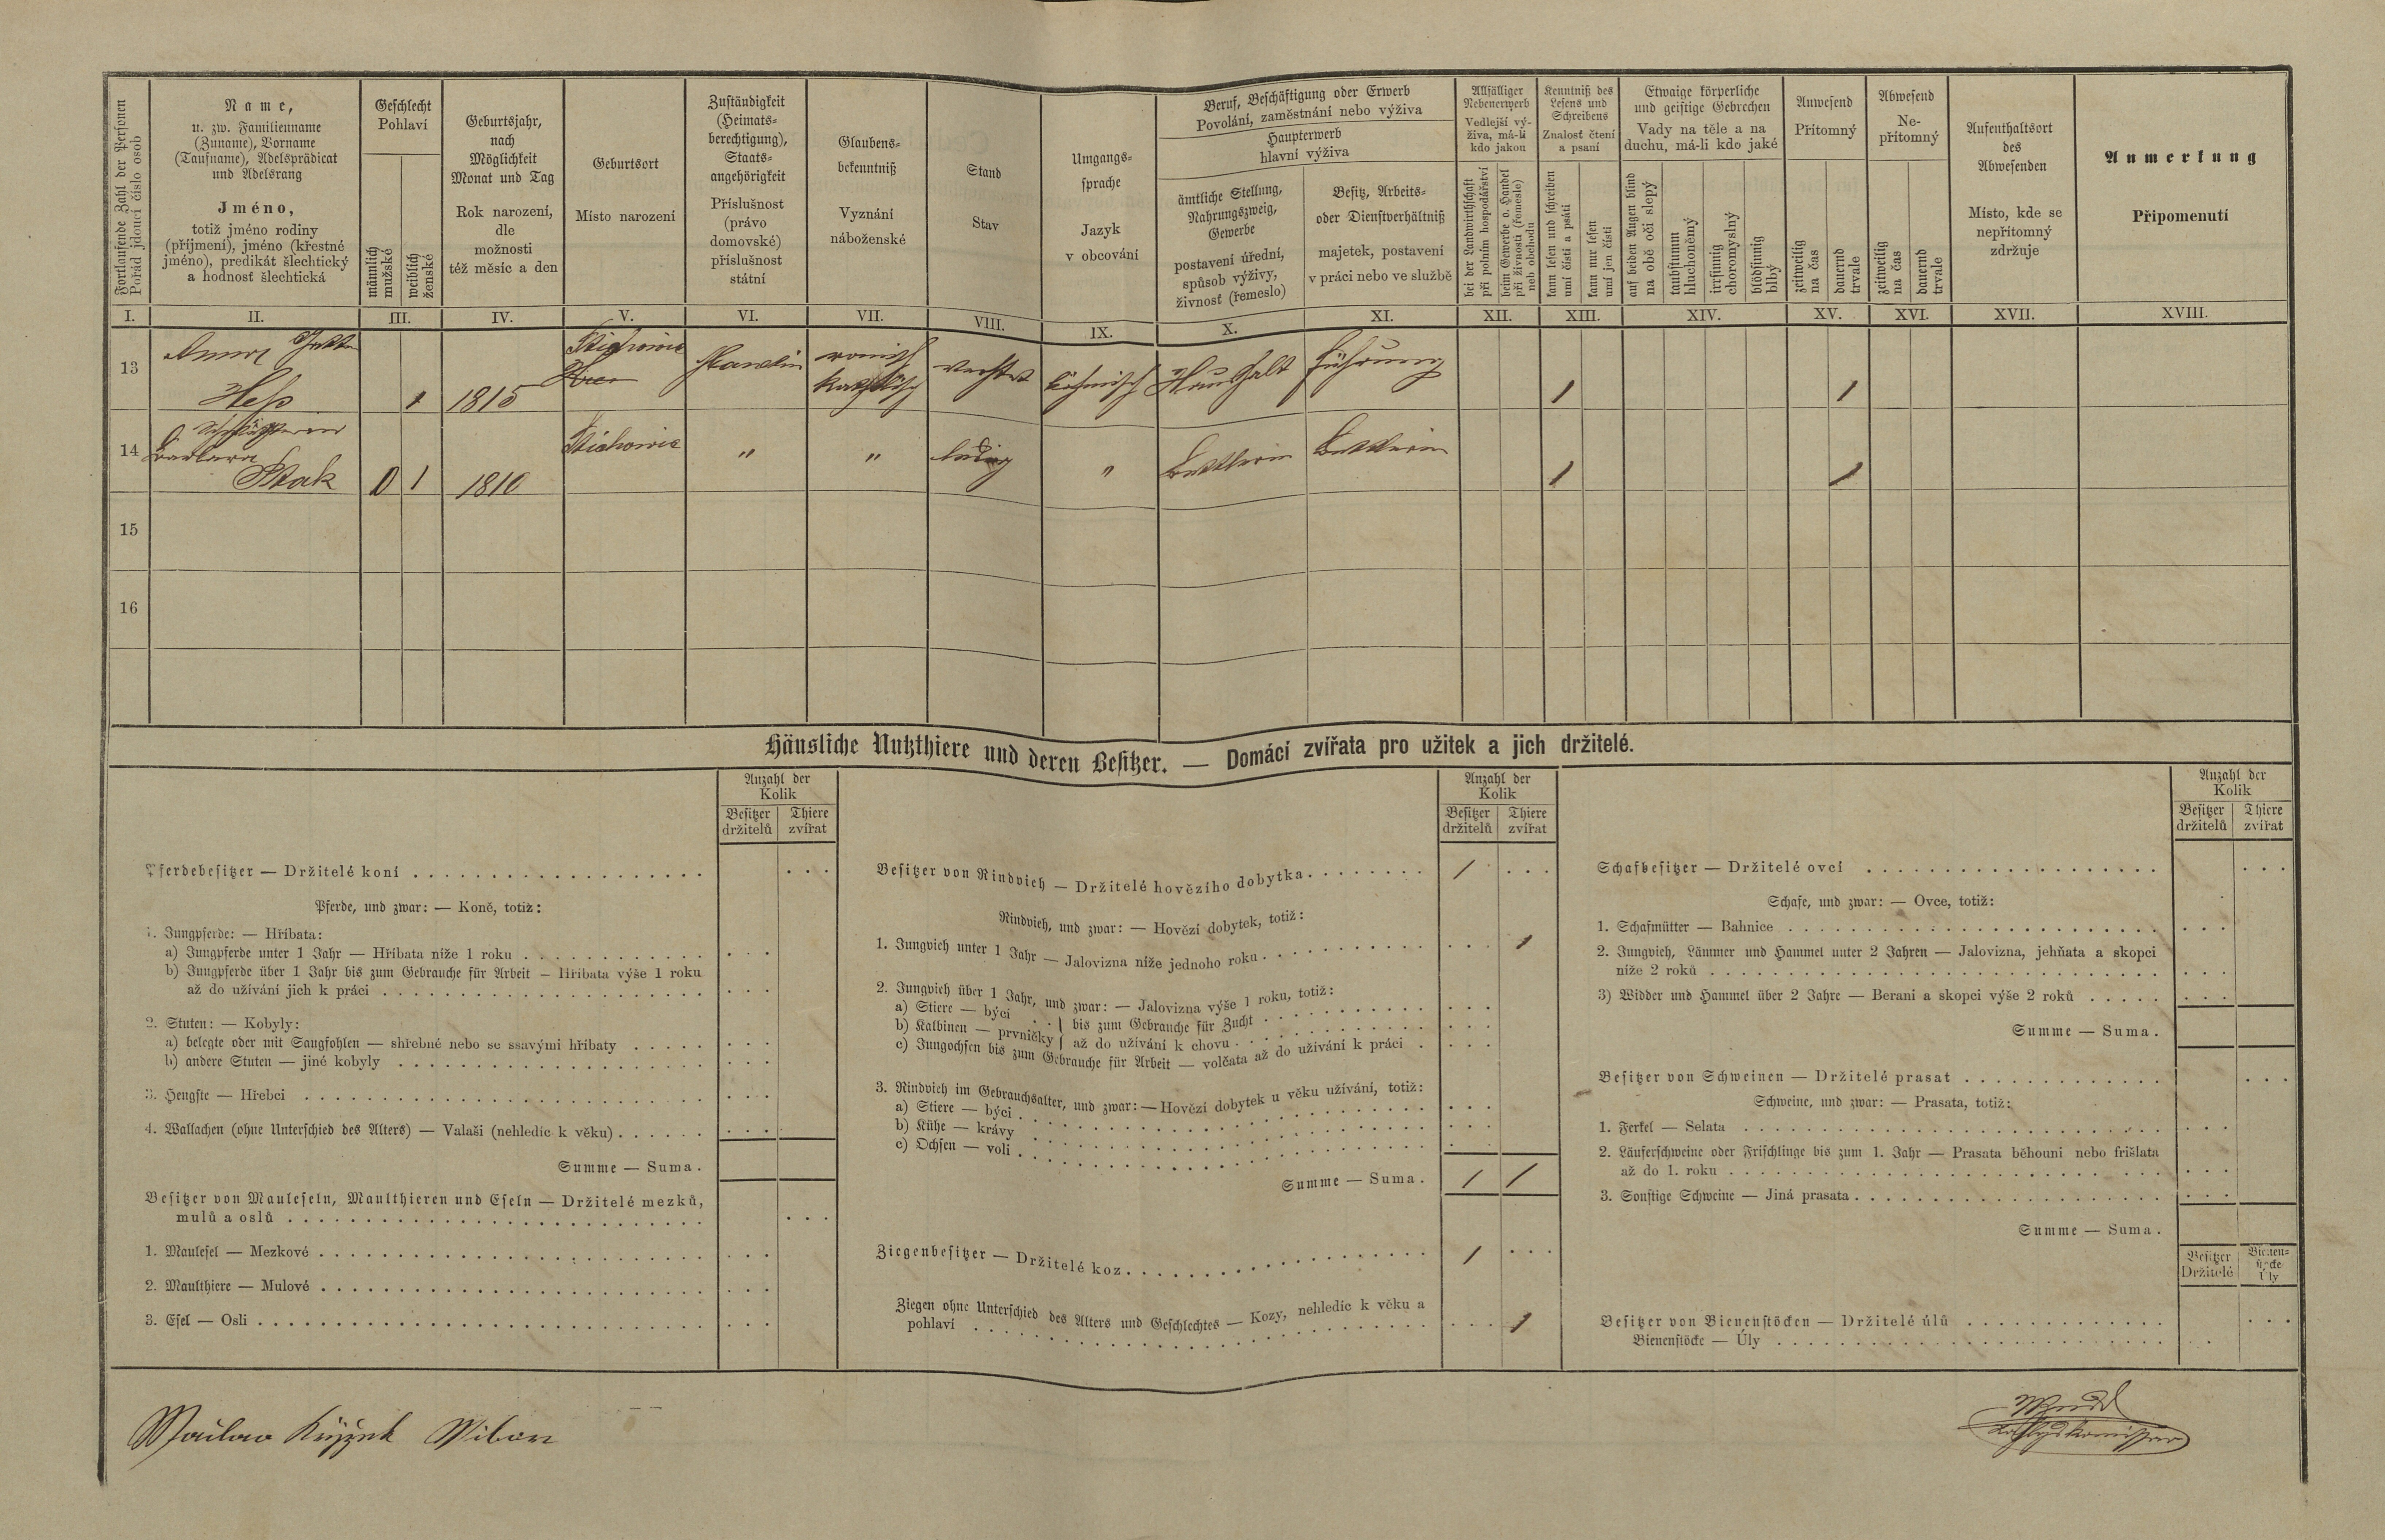 Fortlaufende Zahl der Personen
Pořád jdoucí číslo osob
Name,
u. zw. Familienname
(Zuname), Vorname
(Taufname), Adelsprädicat
und Adelsrang
Jméno,
totiž jméno rodiny
(příjmení), jméno (křestné
jméno), predikát šlechtický
a hodnosť šlechtická
Geschlecht
Pohlaví
männlich
mužské
weiblich
ženské
Geburtsjahr,
nach
Möglichkeit
Monat und Tag
Rok narození,
dle
možnosti
též měsíc a den
Geburtsort
Místo narození
Zuständigkeit
(Heimats-
berechtigung),
Staats-
angehörigkeit
Příslušnost
(právo
domovské)
příslušnost
státní
Glaubens-
bekenntniß
Vyznání
náboženské
Stand
Stav
Umgangs-
sprache
Jazyk
v obcování
Beruf, Beschäftigung oder Erwerb
Povolání, zaměstnání nebo výživa
Haupterwerb
hlavní výživa
ämtliche Stellung,
Nahrungszweig,
Gewerbe
postavení úřední,
spůsob výživy,
živnosť (řemeslo)
Besitz, Arbeits-
oder Dienstverhältniß
majetek, postavení
v práci nebo ve službě
Allfälliger
Nebenerwerb
Vedlejší vý-
živa, má-li
kdo jakou
bei der Landwirthschaft
při polním hospodářství
beim Gewerbe o. Handel
při živnosti (řemeslo)
neb obchodu
Kenntniß des
Lesens und
Schreibens
Znalosť čtení
a psaní
kann lesen und schreiben
umí čísti a psáti
kann nur lesen
umí jen čísti
Etwaige körperliche
und geistige Gebrechen
Vady na těle a na
duchu, má-li kdo jaké
auf beiden Augen blind
na obě oči slepý
taubstumm
hluchoněmý
irrsinnig
choromyslný
blödsinnig
blbý
Anwesend
Přítomný
zeitweilig
na čas
dauernd
trvale
Abwesend
Ne-
přítomný
zeitweilig
na čas
dauernd
trvale
Aufenthaltsort
des
Abwesenden
Místo, kde se
nepřítomný
zdržuje
Anmerkung
Připomenutí
I. II. III. IV. V. VI. VII. VIII. IX. X. XI. XII. XIII. XIV. XV. XVI. XVII. XVIII.
13 Anna
Heß 1 1815 römisch
katholisch böhmisch Haushalt führung 1 1
14 Barbara
Ptak 0 1 1810 " " ledig " Bettlerin Bettlerin 1 1
15
16
Häusliche Nutzthiere und deren Besitzer. — Domácí zvířata pro užitek a jich držitelé.
Anzahl der
Kolik
Besitzer
držitelů
Thiere
zvířat
Pferdebesitzer — Držitelé koní
Pferde, und zwar: — Koně, totiž:
1. Jungpferde: — Hříbata:
a) Jungpferde unter 1 Jahr — Hříbata níže 1 roku
b) Jungpferde über 1 Jahr bis zum Gebrauche für Arbeit — Hříbata výše 1 roku
až do užívání jich k práci
2. Stuten: — Kobyly:
a) belegte oder mit Saugfohlen — shřebné nebo se ssavými hříbaty
b) andere Stuten — jiné kobyly
3. Hengste — Hřebci
4. Wallachen (ohne Unterschied des Alters) — Valaši (nehledíc k věku)
Summe — Suma.
Besitzer von Mauleseln, Maulthieren und Eseln — Držitelé mezků,
mulů a oslů
1. Maulesel — Mezkové
2. Maulthiere — Mulové
3. Esel — Osli
Anzahl der
Kolik
Besitzer
držitelů
Thiere
zvířat
Besitzer von Rindvieh — Držitelé hovězího dobytka 1
Rindvieh, und zwar: — Hovězí dobytek, totiž:
1. Jungvieh unter 1 Jahr — Jalovizna níže jednoho roku 1
2. Jungvieh über 1 Jahr, und zwar: — Jalovizna výše 1 roku, totiž:
a) Stiere — býci
b) Kalbinen — prvničky } bis zum Gebrauche für Zucht
až do užívání k chovu
c) Jungochsen bis zum Gebrauche für Arbeit — volčata až do užívání k práci
3. Rindvieh im Gebrauchsalter, und zwar: — Hovězí dobytek u věku užívání, totiž:
a) Stiere — býci
b) Kühe — krávy
c) Ochsen — voli
Summe — Suma. 1 1
Ziegenbesitzer — Držitelé koz 1
Ziegen ohne Unterschied des Alters und Geschlechtes — Kozy, nehledíc k věku a
pohlaví 1
Anzahl der
Kolik
Besitzer
držitelů
Thiere
zvířat
Schafbesitzer — Držitelé ovcí
Schafe, und zwar: — Ovce, totiž:
1. Schafmütter — Bahnice
2. Jungvieh, Lämmer und Hammel unter 2 Jahren — Jalovizna, jehňata a skopci
níže 2 roků
3) Widder und Hammel über 2 Jahre — Berani a skopci výše 2 roků
Summe — Suma.
Besitzer von Schweinen — Držitelé prasat
Schweine, und zwar: — Prasata, totiž:
1. Ferkel — Selata
2. Läuferschweine oder Frischlinge bis zum 1. Jahr — Prasata běhouni nebo frišlata
až do 1. roku
3. Sonstige Schweine — Jiná prasata
Summe — Suma.
Besitzer
Držitelé
Bienen-
stöcke
Úly
Besitzer von Bienenstöcken — Držitelé úlů
Bienenstöcke — Úly